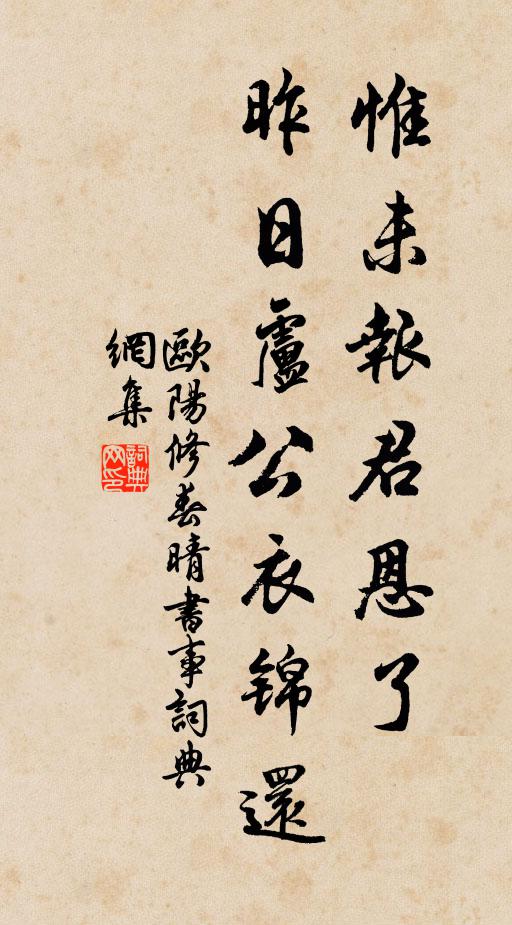 惟未報君恩了
昨日盧公衣錦還
歐陽修春晴書事詞典
網集
詞典
网印